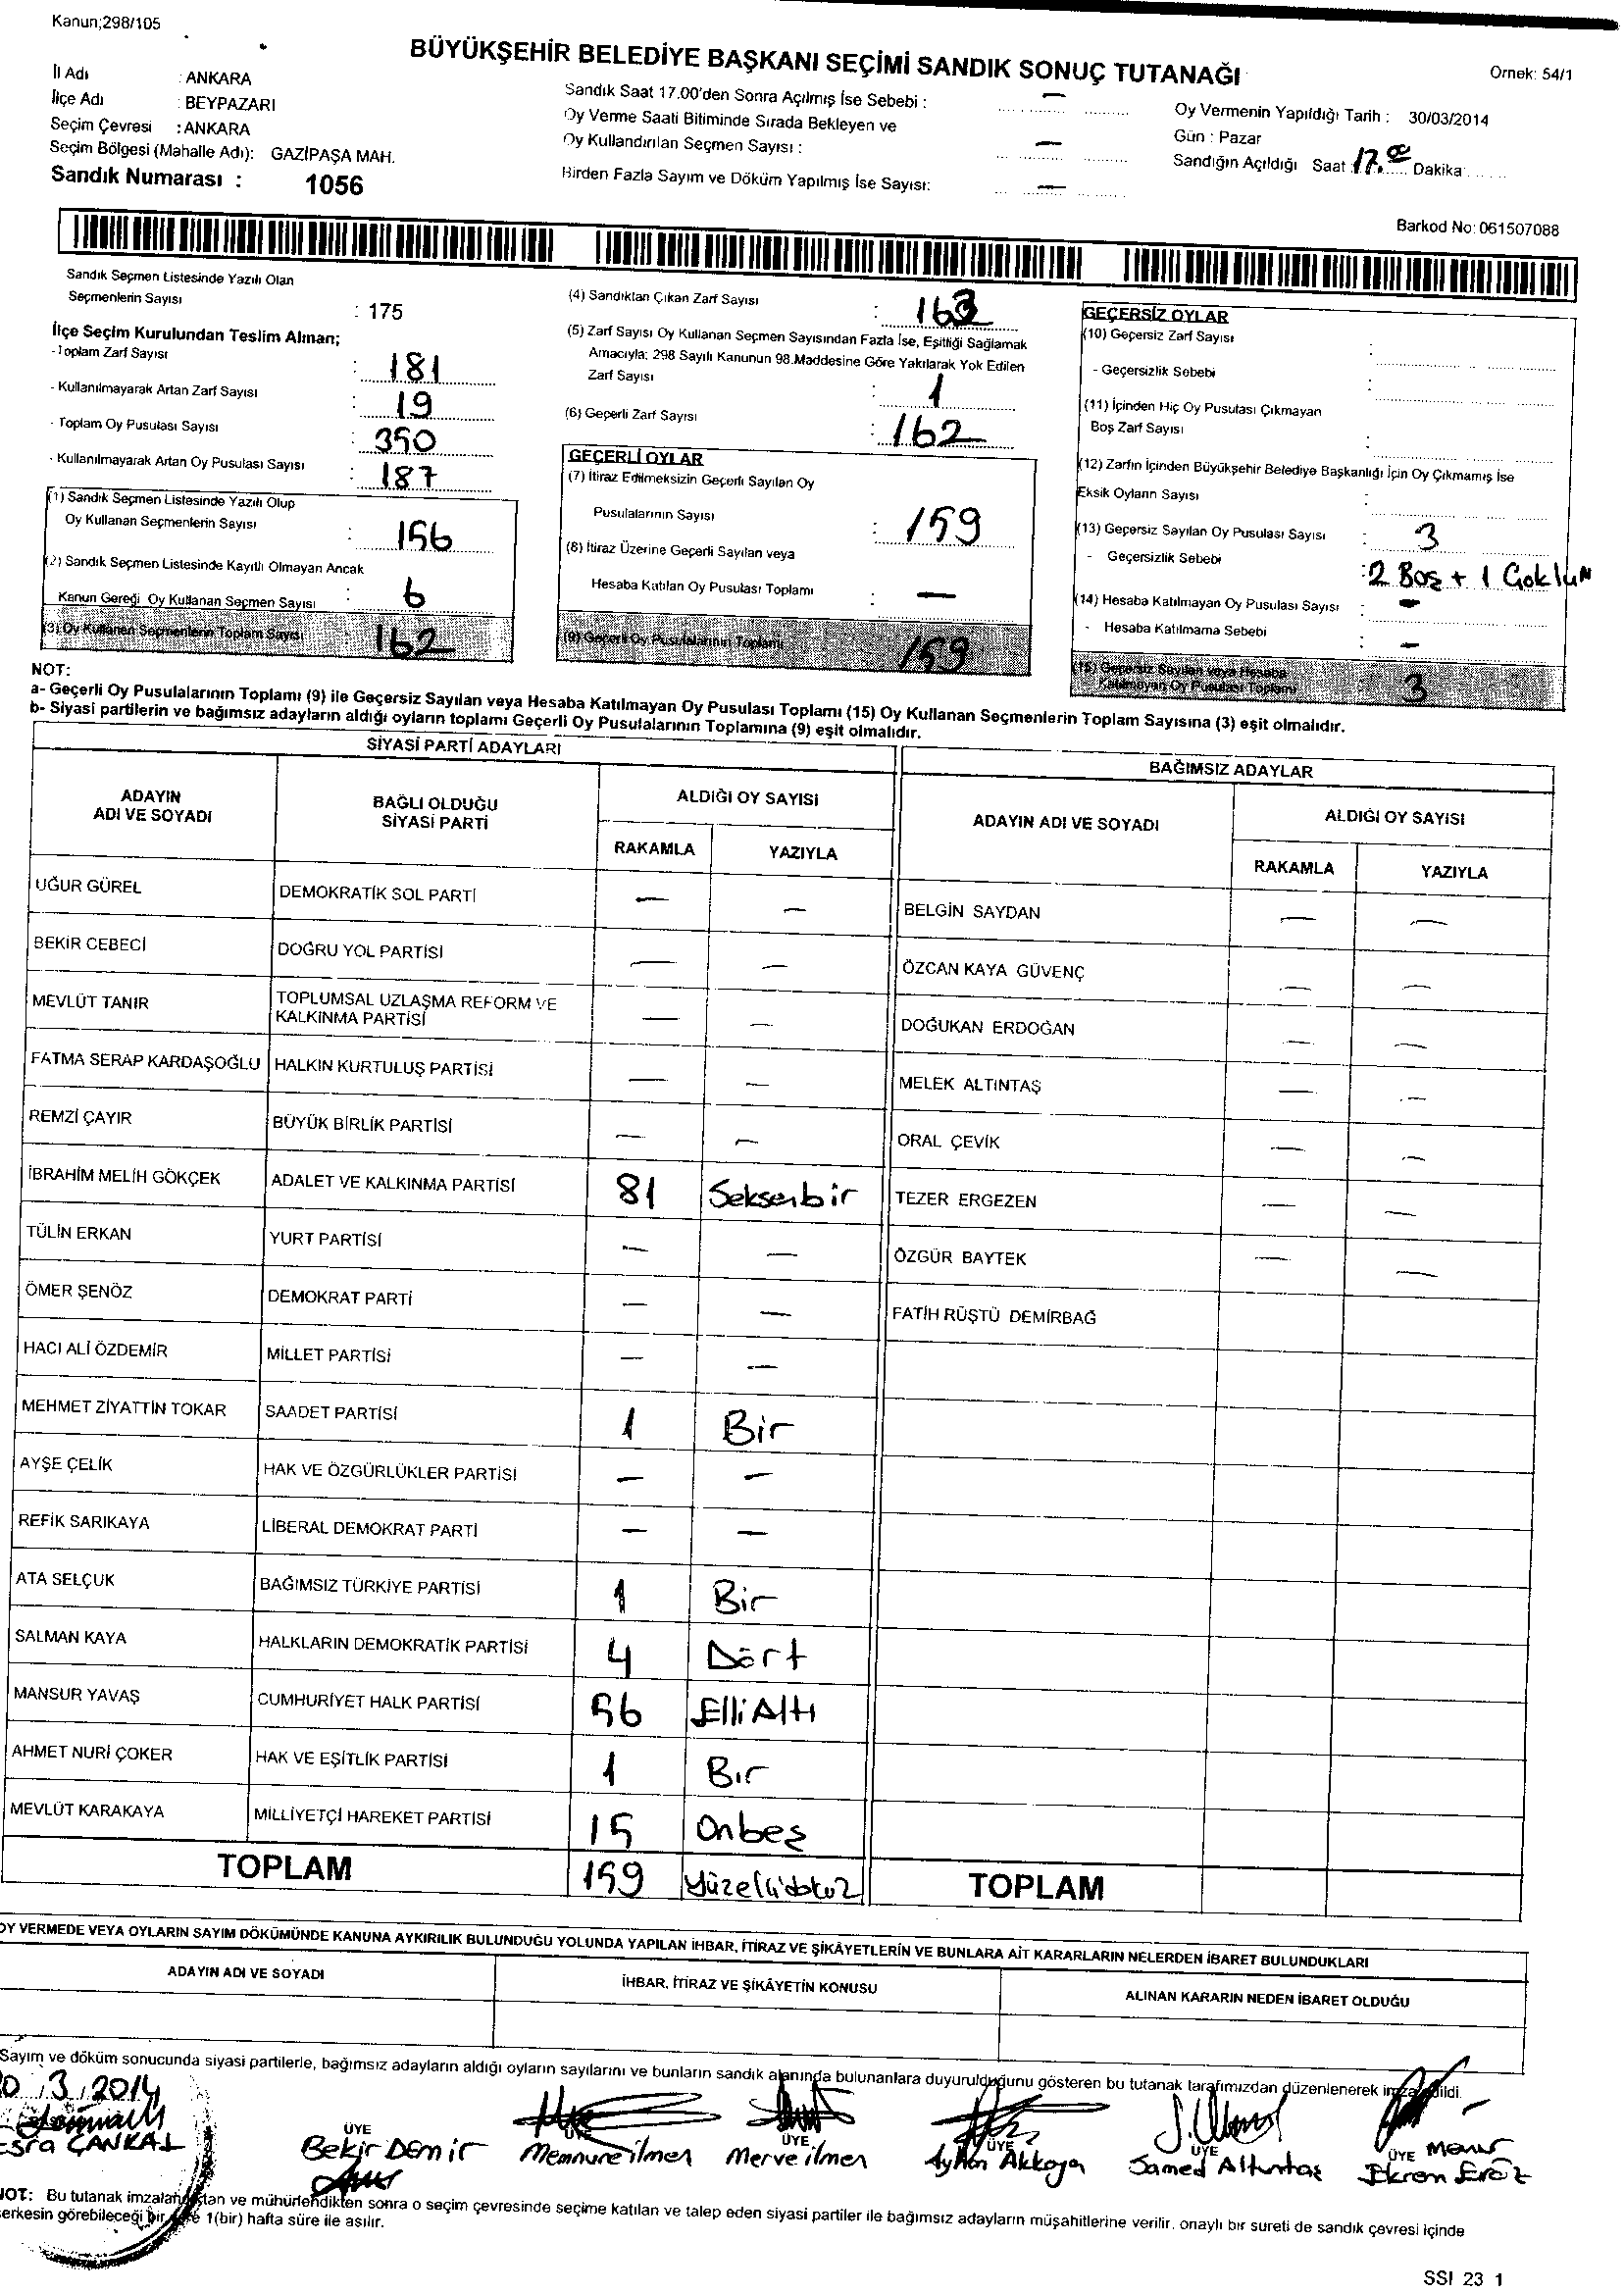 Kanun;298/105
BÜYÜKŞEHİR BELEDİYE BAŞKANI SEÇİMİ SANDIK SONUÇ TUTANAĞI
Ornek: 54/1
İl Adı : ANKARA
İlçe Adı : BEYPAZARI
Seçim Çevresi : ANKARA
Seçim Bölgesi (Mahalle Adı): GAZİPAŞA MAH.
Sandık Numarası : 1056
Sandık Saat 17.00'den Sonra Açılmış İse Sebebi : —
Oy Verme Saati Bitiminde Sırada Bekleyen ve
Oy Kullandırılan Seçmen Sayısı : —
Birden Fazla Sayım ve Döküm Yapılmış İse Sayısı: —
Oy Vermenin Yapıldığı Tarih : 30/03/2014
Gün : Pazar
Sandığın Açıldığı Saat 17.00 Dakika
Barkod No: 061507088
Sandık Seçmen Listesinde Yazılı Olan
Seçmenlerin Sayısı : 175
İlçe Seçim Kurulundan Teslim Alınan;
- Toplam Zarf Sayısı : 181
- Kullanılmayarak Artan Zarf Sayısı : 19
- Toplam Oy Pusulası Sayısı : 350
- Kullanılmayarak Artan Oy Pusulası Sayısı : 187
(1) Sandık Seçmen Listesinde Yazılı Olup
Oy Kullanan Seçmenlerin Sayısı : 156
(2) Sandık Seçmen Listesinde Kayıtlı Olmayan Ancak
Kanun Gereği Oy Kullanan Seçmen Sayısı : 6
(3) Oy Kullanan Seçmenlerin Toplam Sayısı : 162
(4) Sandıktan Çıkan Zarf Sayısı : 163
(5) Zarf Sayısı Oy Kullanan Seçmen Sayısından Fazla İse, Eşitliği Sağlamak
Amacıyla; 298 Sayılı Kanunun 98.Maddesine Göre Yakılarak Yok Edilen
Zarf Sayısı : 1
(6) Geçerli Zarf Sayısı : 162
GEÇERLİ OYLAR
(7) İtiraz Edilmeksizin Geçerli Sayılan Oy
Pusulalarının Sayısı : 159
(8) İtiraz Üzerine Geçerli Sayılan veya
Hesaba Katılan Oy Pusulası Toplamı : —
(9) Geçerli Oy Pusulalarının Toplamı 159
GEÇERSİZ OYLAR
(10) Geçersiz Zarf Sayısı :
- Geçersizlik Sebebi :
(11) İçinden Hiç Oy Pusulası Çıkmayan
Boş Zarf Sayısı :
(12) Zarfın İçinden Büyükşehir Belediye Başkanlığı İçin Oy Çıkmamış İse
Eksik Oyların Sayısı :
(13) Geçersiz Sayılan Oy Pusulası Sayısı : 3
- Geçersizlik Sebebi : 2 Boş + 1 Çoklu
(14) Hesaba Katılmayan Oy Pusulası Sayısı : —
- Hesaba Katılmama Sebebi : —
(15) Geçersiz Sayılan veya Hesaba
Katılmayan Oy Pusulası Toplamı 3
NOT:
a- Geçerli Oy Pusulalarının Toplamı (9) ile Geçersiz Sayılan veya Hesaba Katılmayan Oy Pusulası Toplamı (15) Oy Kullanan Seçmenlerin Toplam Sayısına (3) eşit olmalıdır.
b- Siyasi partilerin ve bağımsız adayların aldığı oyların toplamı Geçerli Oy Pusulalarının Toplamına (9) eşit olmalıdır.
SİYASİ PARTİ ADAYLARI
ADAYIN ADI VE SOYADI
BAĞLI OLDUĞU SİYASİ PARTİ
ALDIĞI OY SAYISI
RAKAMLA YAZIYLA
UĞUR GÜREL DEMOKRATİK SOL PARTİ — —
BEKİR CEBECİ DOĞRU YOL PARTİSİ — —
MEVLÜT TANIR TOPLUMSAL UZLAŞMA REFORM VE
KALKINMA PARTİSİ — —
FATMA SERAP KARDAŞOĞLU HALKIN KURTULUŞ PARTİSİ — —
REMZİ ÇAYIR BÜYÜK BİRLİK PARTİSİ — —
İBRAHİM MELİH GÖKÇEK ADALET VE KALKINMA PARTİSİ 81 Seksenbir
TÜLİN ERKAN YURT PARTİSİ — —
ÖMER ŞENÖZ DEMOKRAT PARTİ — —
HACI ALİ ÖZDEMİR MİLLET PARTİSİ — —
MEHMET ZİYATTİN TOKAR SAADET PARTİSİ 1 Bir
AYŞE ÇELİK HAK VE ÖZGÜRLÜKLER PARTİSİ — —
REFİK SARIKAYA LİBERAL DEMOKRAT PARTİ — —
ATA SELÇUK BAĞIMSIZ TÜRKİYE PARTİSİ 1 Bir
SALMAN KAYA HALKLARIN DEMOKRATİK PARTİSİ 4 Dört
MANSUR YAVAŞ CUMHURİYET HALK PARTİSİ 56 ElliAltı
AHMET NURİ ÇOKER HAK VE EŞİTLİK PARTİSİ 1 Bır
MEVLÜT KARAKAYA MİLLİYETÇİ HAREKET PARTİSİ 15 Onbeş
TOPLAM 159 Yüzellidokuz
BAĞIMSIZ ADAYLAR
ADAYIN ADI VE SOYADI
ALDIĞI OY SAYISI
RAKAMLA YAZIYLA
BELGİN SAYDAN — —
ÖZCAN KAYA GÜVENÇ — —
DOĞUKAN ERDOĞAN — —
MELEK ALTINTAŞ — —
ORAL ÇEVİK — —
TEZER ERGEZEN — —
ÖZGÜR BAYTEK — —
FATİH RÜŞTÜ DEMİRBAĞ
TOPLAM
OY VERMEDE VEYA OYLARIN SAYIM DÖKÜMÜNDE KANUNA AYKIRILIK BULUNDUĞU YOLUNDA YAPILAN İHBAR, İTİRAZ VE ŞİKÂYETLERİN VE BUNLARA AİT KARARLARIN NELERDEN İBARET BULUNDUKLARI
ADAYIN ADI VE SOYADI
İHBAR, İTİRAZ VE ŞİKÂYETİN KONUSU
ALINAN KARARIN NEDEN İBARET OLDUĞU
Sayım ve döküm sonucunda siyasi partilerle, bağımsız adayların aldığı oyların sayılarını ve bunların sandık alanında bulunanlara duyurulduğunu gösteren bu tutanak tarafımızdan düzenlenerek imzalanıldı.
0 / 3 / 2014
Esra ÇANKAL
ÜYE Bekir Demir
ÜYE Memnure ilmen
ÜYE Merve ilmen
ÜYE Ayhan Akkaya
ÜYE Samed Altuntaş
ÜYE Ekrem Eröz
NOT: Bu tutanak imzalandıktan ve mühürlendikten sonra o seçim çevresinde seçime katılan ve talep eden siyasi partiler ile bağımsız adayların müşahitlerine verilir, onaylı bir sureti de sandık çevresi içinde
herkesin görebileceği bir yere 1(bir) hafta süre ile asılır.
SSI 23 1